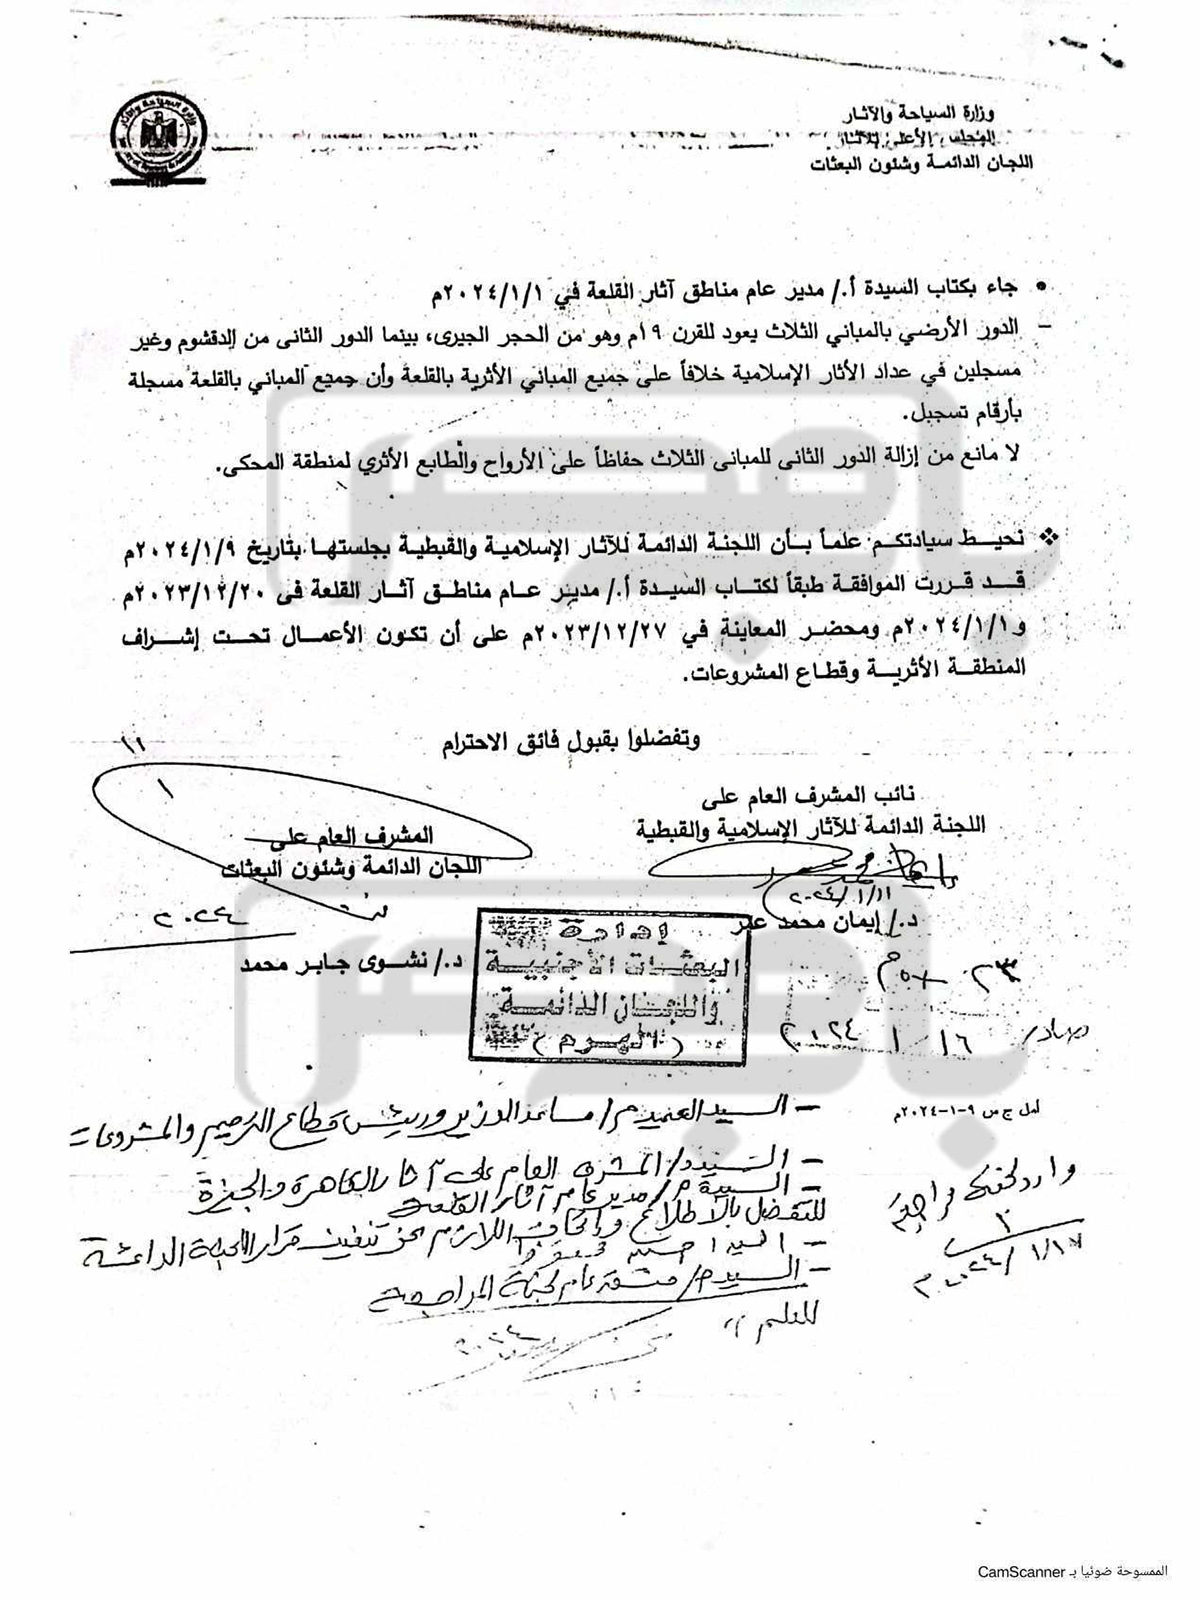 وزارة السياحة والآثار
المجلس الأعلى للآثار
اللجان الدائمة وشئون البعثات
• جاء بكتاب السيدة أ./ مدير عام مناطق آثار القلعة في ٢٠٢٤/١/١م
– الدور الأرضي بالمباني الثلاث يعود للقرن ١٩م وهو من الحجر الجيرى، بينما الدور الثانى من الدقشوم وغير
مسجلين في عداد الأثار الإسلامية خلافاً على جميع المباني الأثرية بالقلعة وأن جميع المباني بالقلعة مسجلة
بأرقام تسجيل.
لا مانع من إزالة الدور الثانى للمبانى الثلاث حفاظاً على الأرواح والطابع الأثري لمنطقة المحكى.
❖ نحيط سيادتكم علماً بأن اللجنة الدائمة للآثار الإسلامية والقبطية بجلستها بتاريخ ٢٠٢٤/١/٩م
قد قررت الموافقة طبقاً لكتاب السيدة أ./ مدير عام مناطق آثار القلعة فى ٢٠٢٣/١٢/٢٠م
و٢٠٢٤/١/١م ومحضر المعاينة في ٢٠٢٣/١٢/٢٧م على أن تكون الأعمال تحت إشراف
المنطقة الأثرية وقطاع المشروعات.
وتفضلوا بقبول فائق الاحترام
نائب المشرف العام على
اللجنة الدائمة للآثار الإسلامية والقبطية
٢٠٢٤/١/١١
د./ إيمان محمد عمر
١١
١
المشرف العام على
اللجان الدائمة وشئون البعثات
٢٠٢٤
د./ نشوى جابر محمد
إدارة
البعثات الأجنبية
واللجان الدائمة
(الهرم)
صادر/ ١٦ / ١ / ٢٠٢٤
أمل ج س ٩-١-٢٠٢٤م
– السيد العميد م/ مساعد الوزير ورئيس قطاع الترميم والمشروعات
– السيد د/ المشرف العام على آثار القاهرة والجيزة
– السيدة م/ مدير عام آثار القلعة
للتفضل بالاطلاع وإتخاذ اللازم نحو تنفيذ قرار اللجنة الدائمة
– السيد م/ عام لجنة المراجعة
للعلم ،،
وارد لجنة مراجعة
٢
٢٠٢٤/١/١٧م
الممسوحة ضوئيا بـ CamScanner
باب مصر
باب مصر